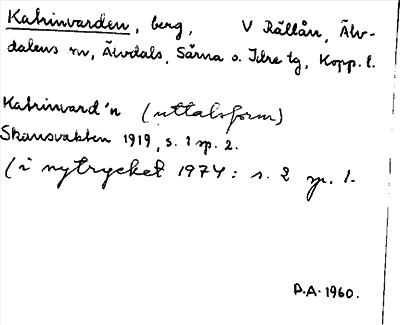 Katrinvarden, berg, V Rällån, Älv-
dalens sn, Älvdals, Särna o. Idre tg, Kopp. l.
Katrinvard'n (uttalsform)
Skansvakten 1919, s. 1 sp. 2.
(i nytrycket 1974: s. 2 sp. 1.
P.A. 1960.